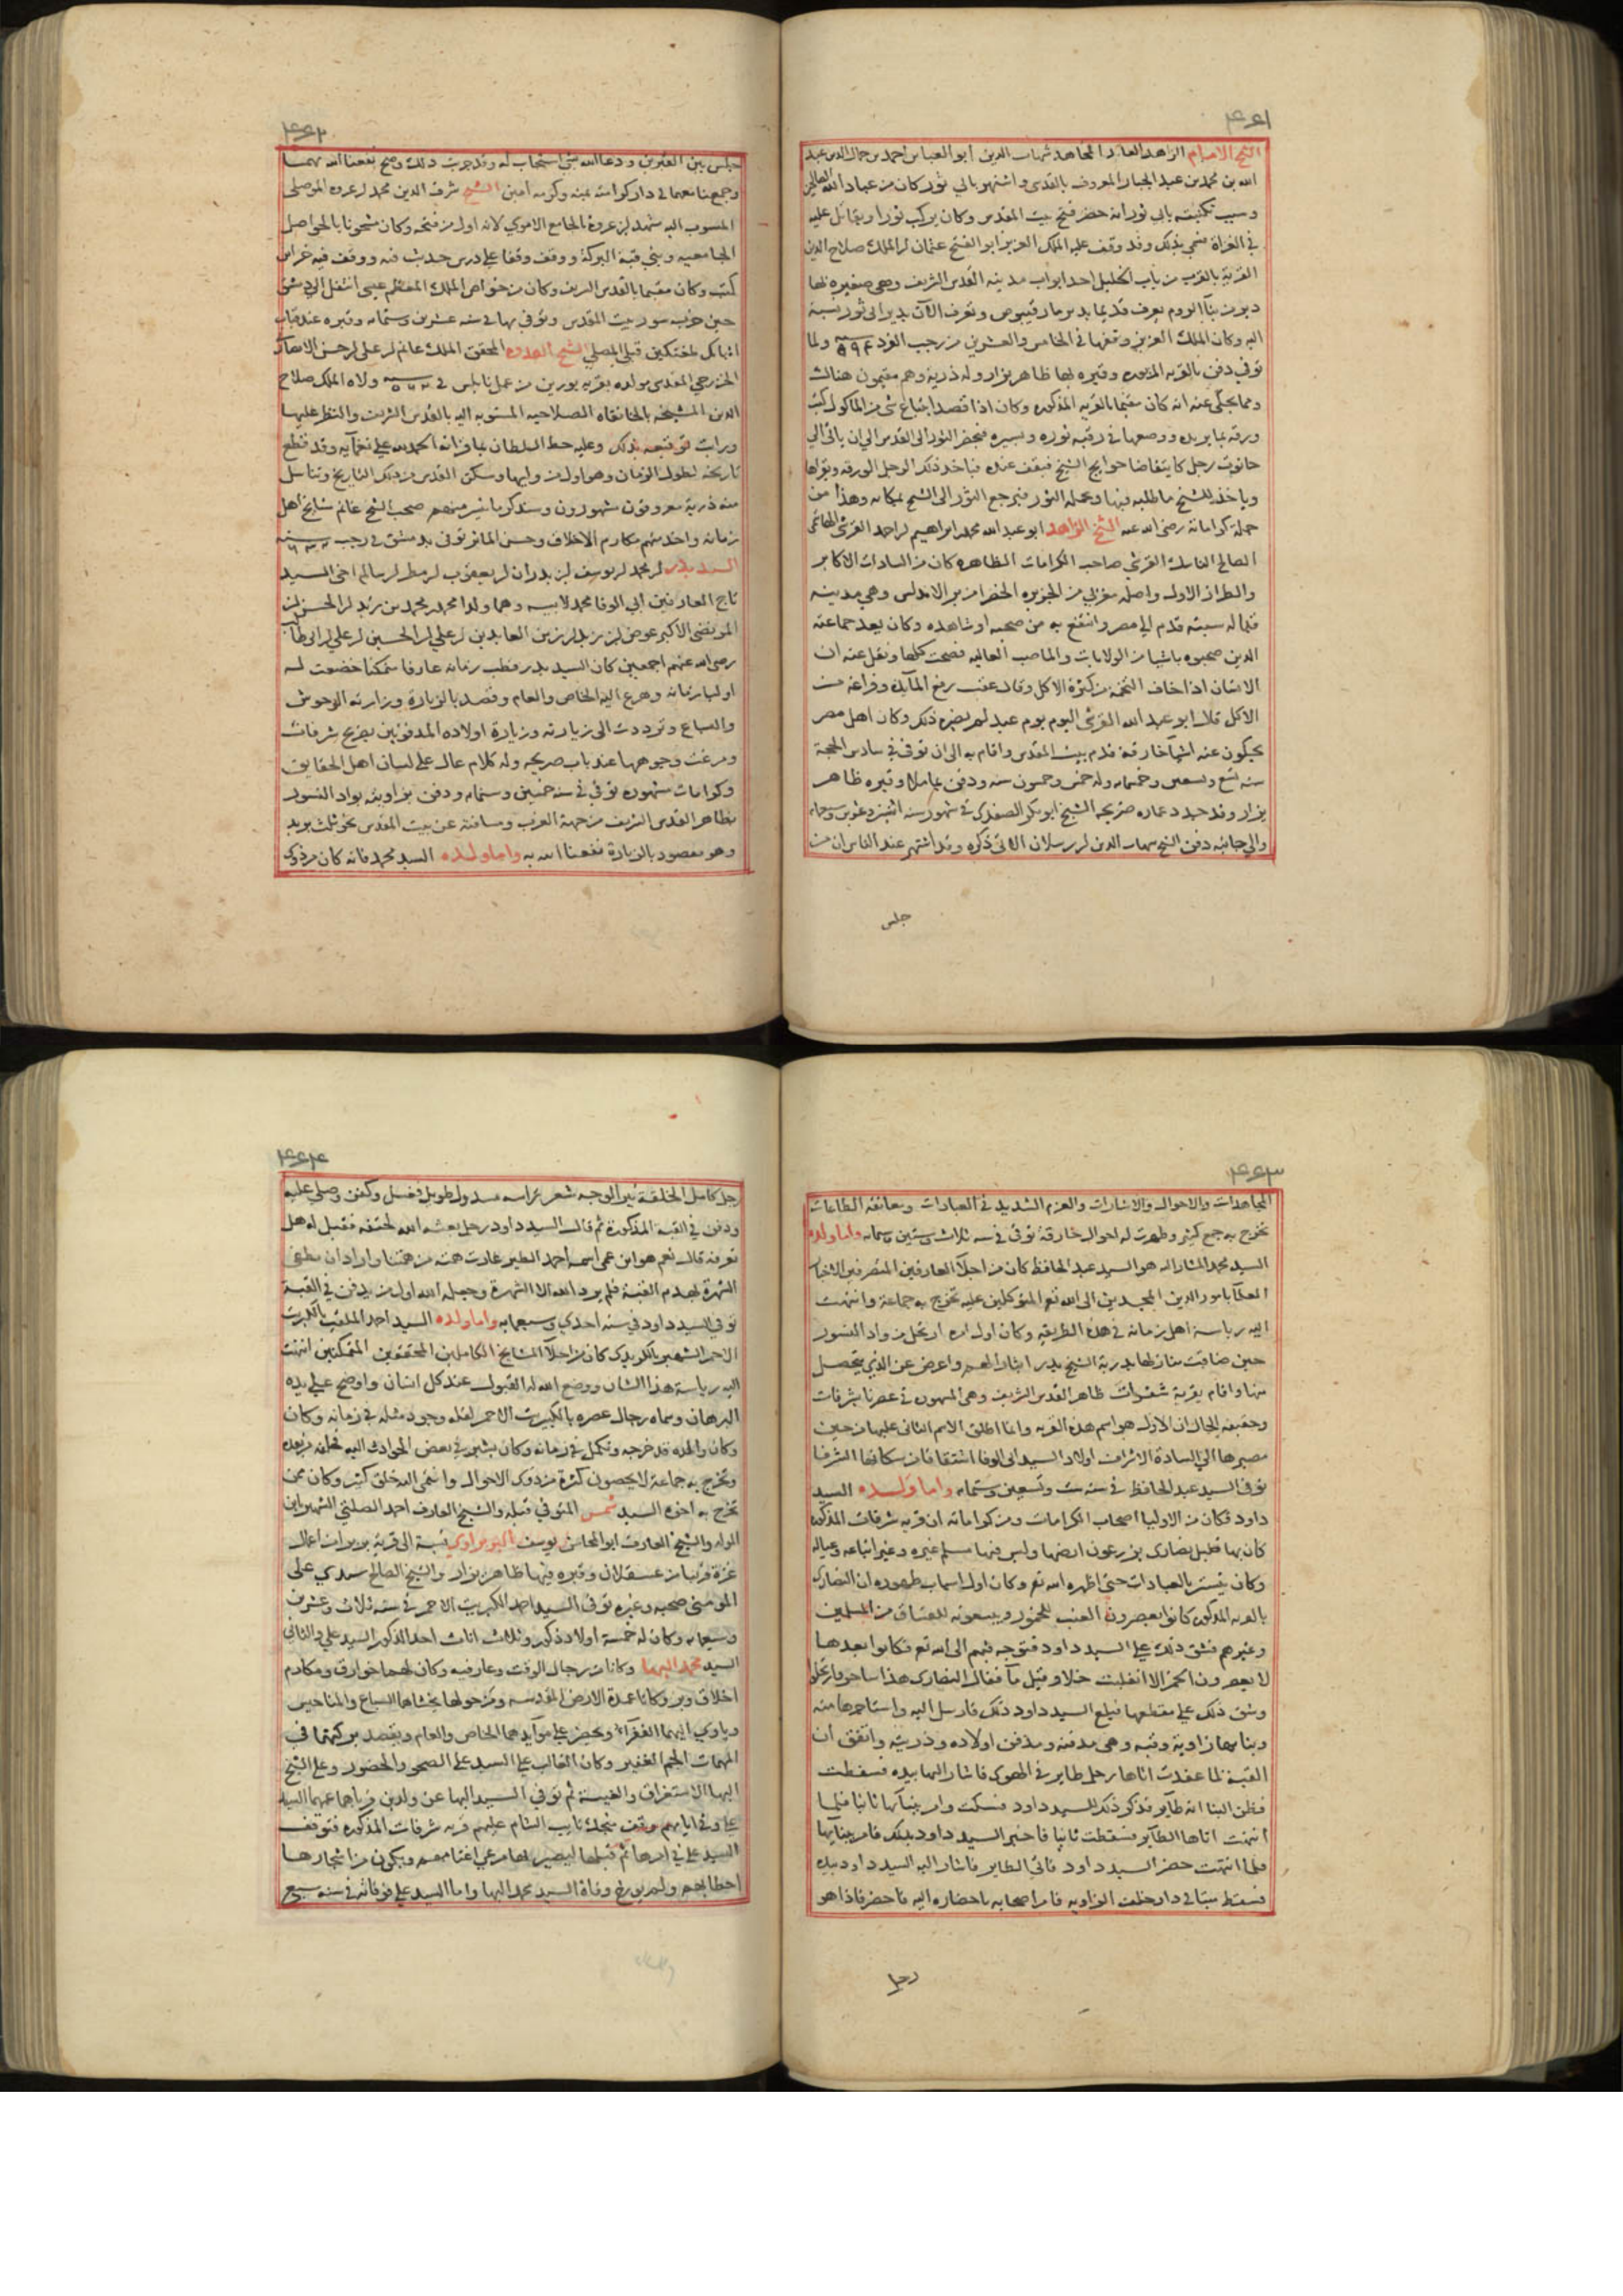 ٤٤١
الشيخ الامام الزاهد العابد المجاهد شهاب الدين ابو العباس احمد بن جمال الدين عبد
الله بن محمد بن عبد الجبار المعروف بالقدسي واشتهر بابي ثور كان من عباد الله الصالحين
وسبب تكنيته بابي ثور انه حضر فتح بيت المقدس وكان يركب ثورا ويقاتل عليه
في الغزاة فسمي بذلك وقد وقف عليه الملك العزيز ابو الفتح عثمان بن الملك صلاح الدين
القرية بالقرب من باب الخليل احد ابواب مدينة القدس الشريف وهي صغيره بها
دير من بنآ الروم يعرف قديما بدير مار قيبوص وتعرف الآن بدير ابي ثور نسبة
اليه وكان الملك العزيز وقفها في الخامس والعشرين من رجب الفرد سنة ٥٩٤ ولما
توفي دفن بالقريه المذكوره وقبره بها ظاهر يزار وله ذرية وهم مقيمون هناك
ومما يحكى عنه انه كان مقيما بالقريه المذكوره وكان اذا قصد ابتياع شي من الماكول كتب
ورقه بما يريد ووضعها في رقبة ثوره وسيره فيحضر الثور الى القدس الى ان ياتي الى
حانوت رجل كان يتقاضا حوايج الشيخ فيقف عنده فياخذ ذلك الرجل الورقه ويقراها
وياخذ للشيخ ما طلبه فيها ويحمله الثور فيرجع الثور الى الشيخ بمكانه وهذا من
جملة كراماته رضي الله عنه الشيخ الزاهد ابو عبد الله محمد بن ابراهيم بن احمد القرشي الهاشمي
الصالح الناسك القرشي صاحب الكرامات الظاهره كان من السادات الاكابر
والطراز الاول واصله مغربي من الجزيره الخضرا من بر الاندلس وهي مدينه
قباله سبته قدم الى مصر وانتفع به من صحبه او شاهده وكان يعد جماعته
الذين صحبوه باشيا من الولايات والمناصب العاليه فصحت كلها ونقل عنه ان
الانسان اذا خاف التخمة من كثرة الاكل وقال عقب رفع المآيده وفراغه من
الاكل قال ابو عبد الله القرشي اليوم يوم عيد لم يضره ذلك وكان اهل مصر
يحكون عنه اشيآ خارقة قدم بيت المقدس واقام به الى ان توفي في سادس الحجة
سنه تسع وتسعين وخمسمايه وله خمس وخمسون سنه ودفن بماملا وقبره ظاهر
يزار وقد جدد عماره ضريحه الشيخ ابو بكر الصفدي في شهور سنه اثنين وعشرين وسبعمايه
والى جانبه دفن الشيخ شهاب الدين بن رسلان الاتي ذكره وقد اشتهر عند الناس ان من
جلس
٤٤٢
جلس بين القبرين ودعا الله بشي استجاب له وقد جرب ذلك وصح نفعنا الله بهما
وجمعنا معهما في دار كرامته بمنه وكرمه امين الشيخ شرف الدين محمد بن عروه الموصلي
المنسوب اليه مشهد بن عروة بالجامع الاموي لانه اول من فتحه وكان مشحونا بالحواصل
الجامعيه وبنى قبة البركة ووقف وقفا على درس حديث فيه ووقف فيه خزاين
كتب وكان مقيما بالقدس الشريف وكان من خواص الملك المعظم عيسى انتقل الى دمشق
حين خرب سور بيت المقدس وتوفي بها في سنه عشرين وستمايه وقبره عند قباب
اتابك طغتكين قبلي المصلي الشيخ القدوة المحقق الملك غانم بن علي بن حسن الانصاري
الخزرجي المقدسي مولده بقريه بورين من عمل نابلس في سنة ٥٦٢ ولاه الملك صلاح
الدين المشيخه بالخانقاه الصلاحيه المنسوبه اليه بالقدس الشريف والنظر عليها
ورايت توقيعه بذلك وعليه خط السلطان بما قراته الحمد لله على نعمآيه وقد قطع
تاريخه لطول الزمان وهو اول من وليها وسكن القدس من ذلك التاريخ وتناسل
منه ذرية معروفون مشهورون وسنذكر ما تيسر منهم صحب الشيخ غانم مشايخ اهل
زمانه واخذ منهم مكارم الاخلاق وحسن الماثر توفي بدمشق في رجب سنة ٦٣٢
السيد بدر بن محمد بن يوسف بن بدران بن يعقوب بن مطر بن سالم اخي السيد
تاج العارفين ابي الوفا محمد لابيه وهما ولدا محمد بن محمد بن زيد بن الحسن بن
المرتضى الاكبر عوض بن زيد بن زين العابدين بن علي بن الحسين بن علي بن ابي طالب
رضي الله عنهم اجمعين كان السيد بدر قطب زمانه عارفا متمكنا خضعت له
اوليا زمانه وهرع اليه الخاص والعام وقصد بالزيارة وزارته الوحوش
والسباع وترددت الى زيارته وزيارة اولاده المدفونين بضريح شرفات
ومرغت وجوهها عند باب ضريحه وله كلام عال على لسان اهل الحقايق
وكرامات مشهوره توفي في سنه خمسين وستمايه ودفن بزاويته بواد النسور
بظاهر القدس الشريف من جهة الغرب ومسافته عن بيت المقدس نحو ثلث بريد
وهو مقصود بالزيارة نفعنا الله به واما ولده السيد محمد فانه كان من ذوي
٤٤٣
المجاهدات والاحوال والاشارات والعزم الشديد في العبادات ومعانقه الطاعات
تخرج به جمع كثير وظهرت له احوال خارقه توفي في سنه ثلاث وستين وستمايه واما ولده
السيد محمد المشار اليه هو السيد عبد الحافظ كان من اجلآ العارفين المتصرفين الاخيار
العلآ بامور الدين المجدين الى الله تع المتوكلين عليه تخرج به جماعة وانتهت
اليه رياسة اهل زمانه في هذه الطريقه وكان اول امره ارتحل من واد النسور
حين ضاقت منازلها بذرية الشيخ بدر ايثارا لهم واعرض عن الذي يتحصل
منها واقام بقرية شفرات ظاهر القدس الشريف وهي المشهور في عصرنا بشرفات
وحقيقه الحال ان الاول هو اسم هذه القريه وانما اطلق الاسم الثاني عليها من حين
مصيرها الى السادة الاشراف اولاد السيد ابي الوفا اشتقاقا من سكانها الشرفا
توفي السيد عبد الحافظ في سنه ست وتسعين وستمايه واما ولده السيد
داود فكان من الاوليا اصحاب الكرامات ومن كراماته ان قريه شرفات المذكوره
كان بها قليل نصارى يزرعون ارضها وليس فيها مسلم غيره وغير اتباعه وعياله
وكان يتستر بالعبادات حتى اظهره الله تع وكان اول اسباب ظهوره ان النصارى
بالقريه المذكوره كانوا يعصرون العنب للخمور ويبيعونه للفساق من المسلمين
وغيرهم فشق ذلك على السيد داود فتوجه فيهم الى الله تع فكانوا بعدها
لا يعصرون الخمر الا انقلبت خلا وقيل مآ فقال النصارى هذا ساحر فارتحلوا
وشق ذلك على مقطعها فبلغ السيد داود ذلك فارسل اليه واستاجرها منه
وبنا بها زاوية وقبه وهي مدفنه ومدفن اولاده وذريته واتفق ان
القبة لما عقدت اتاها رجل طاير في الهوى فاشار اليها بيده فسقطت
فظن البنا انه طآير فذكر ذلك للسيد داود فسكت وامر ببنآيها ثانيا فلما
انتهت اتاها الطآير فسقطت ثانيا فاخبر السيد داود بذلك فامر ببنايها
فلما انتهت حضر السيد داود فاتى الطاير فاشار اليه السيد داود بيده
فسقط ميتا في دار خلف الزاويه فامر اصحابه باحضاره اليه فاحضر فاذا هو
رجل
٤٤٤
رجل كامل الخلقة نير الوجه شعر راسه مسدول طويل فغسل وكفن وصلي عليه
ودفن في القبة المذكورة ثم قال السيد داود رجل بعثه الله لحتفه فقيل له هل
تعرفه قال نعم هو ابن عمي اسمه احمد الطير غارت همته من همتنا واراد ان يطفي
الشهرة بهدم القبة فلم يرد الله الا الشهرة وجعله الله اول من يدفن في القبة
توفي السيد داود في سنه احدى وسبعمايه واما ولده السيد احمد الملقب بالكبريت
الاحمر الشهير بالكريدي كان من اجلآ المشايخ الكاملين المحققين المتمكنين انتهت
اليه رياسة هذا الشان ووضع الله له القبول عند كل انسان واوضح على يده
البرهان وسماه رجال عصره بالكبريت الاحمر لقله وجود مثله في زمانه وكان
وكان والده قد خرجه وتكمل في زمانه وكان يشير في بعض الحوادث اليه
وتخرج به جماعة لا يحصون كثرة من ذوي الاحوال وانتمى اليه خلق كثير وكان ممن
تخرج به اخوه السيد شمس المتوفي قبله والشيخ العارف احمد الصلتي الشهير بابن
المولد والشيخ العارف ابو المحاسن يوسف البربراوي نسبة الى قرية بربرا من اعمال
غزة قريبا من عسقلان وقبره فيها ظاهر يزار والشيخ الصالح سعدي على
المومني صحبه وغيره توفي السيد احمد الكبريت الاحمر في سنه ثلاث وعشرين
وسبعمايه وكان له خمسة اولاد ذكور وثلاث اناث احد الذكور السيد علي والثاني
السيد محمد البها وكانا من رجال الوقت وعارفيه وكان لهما خوارق ومكارم
اخلاق وبر وكانا عمدة الارض المقدسه ومن حولها يخشاها السباع والمناحيس
وياوي اليهما الفقرآ ويحضر على موآيدهما الخاص والعام ويقصد بركتهما في
المهمات الجم الغفير وكان الغالب على السيد علي الصحو والحضور وعلى الشيخ
البها الاستغراق والغيبة ثم توفي السيد البها عن ولدين فرباهما عمهما السيد
علي وفي ايامهم وقف منجك نايب الشام عليهم قريه شرفات المذكوره فتوقف
السيد علي في امرها ثم قبلها ليصير لها مرعى اغنامهم ويكون من اشجارها
احطابهم ولم يورخ وفاة السيد محمد البها واما السيد علي فوفاته في سنه سبع